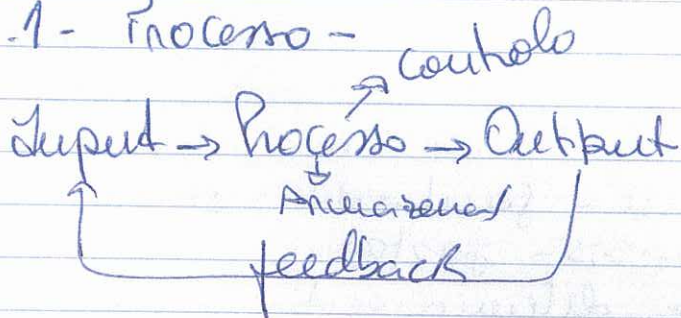 .1- Processo -
Controlo
Input → Processo → Output
Armazenar
feedback